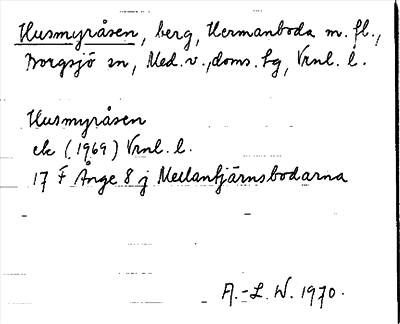 Husmyråsen, berg, Hermanboda m. fl.,
Borgsjö sn, Med. v., doms. tg, Vrnl. l.
Husmyråsen
ek (1969) Vrnl. l.
17 F Ånge 8 j Mellantjärnsbodarna
A.-L. W. 1970.